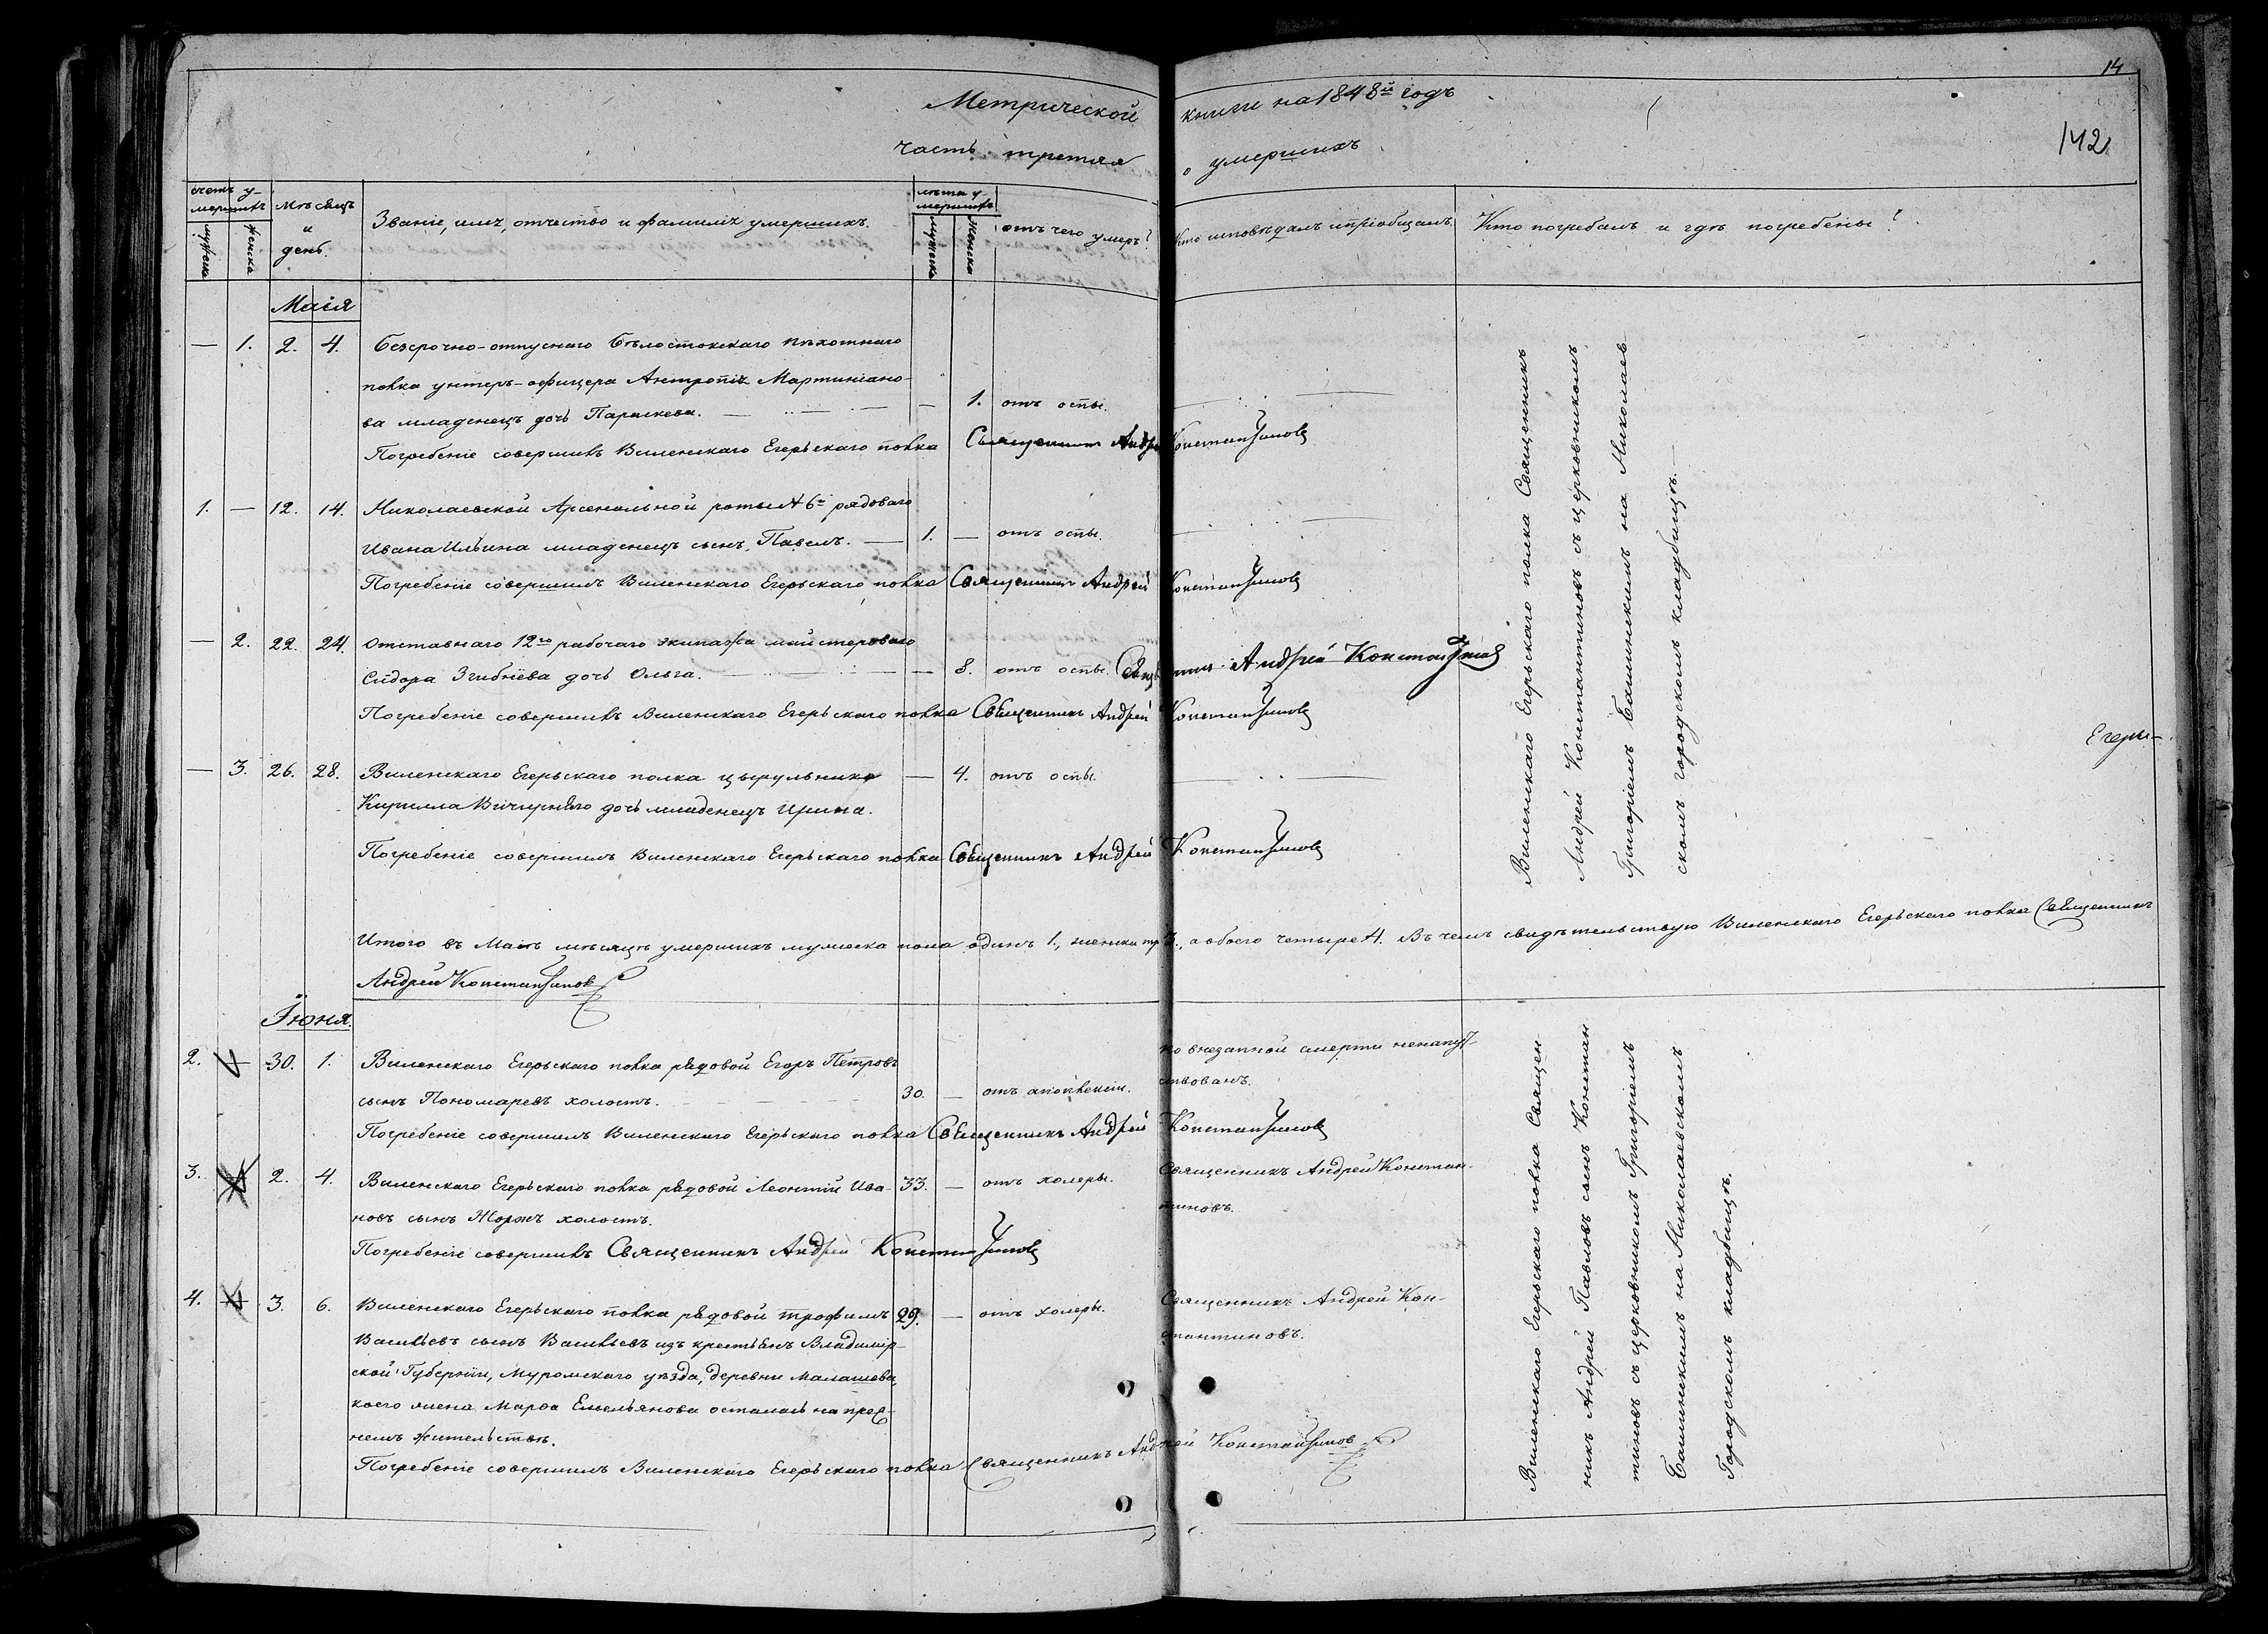 14
142
Метрической книги на 1848й годъ
часть третяя о умершихъ
счетъ умершихъ
мужеска
женска
Мѣсяцъ и день.
Званіе, имя, отчество и фамилія умершихъ.
лѣта умершихъ
мужеска
женска
отъ чего умеръ?
Кто исповѣдалъ и пріобщалъ.
Кто погребалъ и гдѣ погребены?
Маія
— 1. 2. 4. Безсрочно-отпуснаго Бѣлостокскаго пѣхотнаго
полка унтеръ-офицера Антропія Мартиніано-
ва младенецъ дочь Параскева. — 1. отъ оспы.
Погребеніе совершилъ Виленскаго Егерьскаго полка Священникъ Андрей Константиновъ
1. — 12. 14. Николаевской Арсенальной роты № 6й рядоваго
Ивана Ильина младенецъ сынъ, Павелъ. — 1. — отъ оспы.
Погребеніе совершилъ Виленскаго Егерьскаго полка Священникъ Андрей Константиновъ
— 2. 22. 24. Отставнаго 12го рабочаго экипажа майстероваго
Сидора Згибнева дочь Ольга. — 8. отъ оспы. Священникъ Андрей Константиновъ
Погребеніе совершилъ Виленскаго Егерьскаго полка Священникъ Андрей Константиновъ
— 3. 26. 28. Виленскаго Егерьскаго полка цырульника — 4. отъ оспы.
Кирилла дочь младенецъ Ирина.
Погребеніе совершилъ Виленскаго Егерьскаго полка Священникъ Андрей Константиновъ
Виленскаго Егерьскаго полка Священникъ
Андрей Константиновъ съ церковникомъ
Григоріемъ Башинскимъ на Николаев
скомъ городскомъ кладбищѣ.—
Егерь-
Итого въ Маѣ мѣсяцѣ умершихъ мужеска пола одинъ 1., женска три 3., а обоего четыре 4. Въ чемъ свидѣтельствую Виленскаго Егерьскаго полка Священникъ
Андрей Константиновъ
Іюня.
2. — 30. 1. Виленскаго Егерьскаго полка рядовой Егоръ Петровъ
по внезапной смерти ненапут-
сынъ Пономаревъ холостъ. 30. — отъ апоплексіи. ствованъ.
Погребеніе совершилъ Виленскаго Егерьскаго полка Священникъ Андрей Константиновъ
3. 2. 4. Виленскаго Егерьскаго полка рядовой Леонтій Ива- 33. — отъ холеры. Священникъ Андрей Констан-
новъ сынъ Жоржъ холостъ. тиновъ.
Погребеніе совершилъ Священникъ Андрей Константиновъ
4. 3. 6. Виленскаго Егерьскаго полка рядовой Трофимъ 29. — отъ холеры. Священникъ Андрей Кон-
Васильевъ сынъ Васильевъ изъ крестьянъ Владимір- стантиновъ.
ской Губерніи, Муромскаго уѣзда, деревни Малашева,
коего жена Марѳа Емельянова осталась на преж-
немъ жительствѣ.
Погребеніе совершилъ Виленскаго Егерьскаго полка Священникъ Андрей Константиновъ
Виленскаго Егерьскаго полка Священ-
никъ Андрей Павловъ сынъ Констан
тиновъ съ церковникомъ Григоріемъ
Башинскимъ на Николаевскомъ
Городскомъ кладбищѣ.